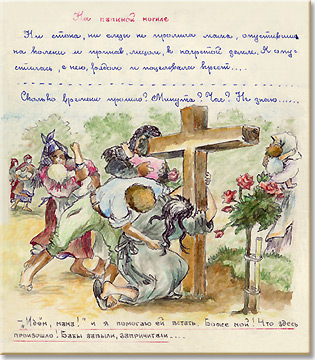 На папиной могиле
Ни стона, ни слезы не пролила мама, опустившись
на колени и припав лицом к нагретой земле. Я опу-
стилась с нею, рядом и поцеловала крест....
Сколько времени прошло? Минута? Час? Не знаю......
– "Идём, мама!" и я помогаю ей встать. Боже мой! Что здесь
произошло! Бабы запыли, запричитали....